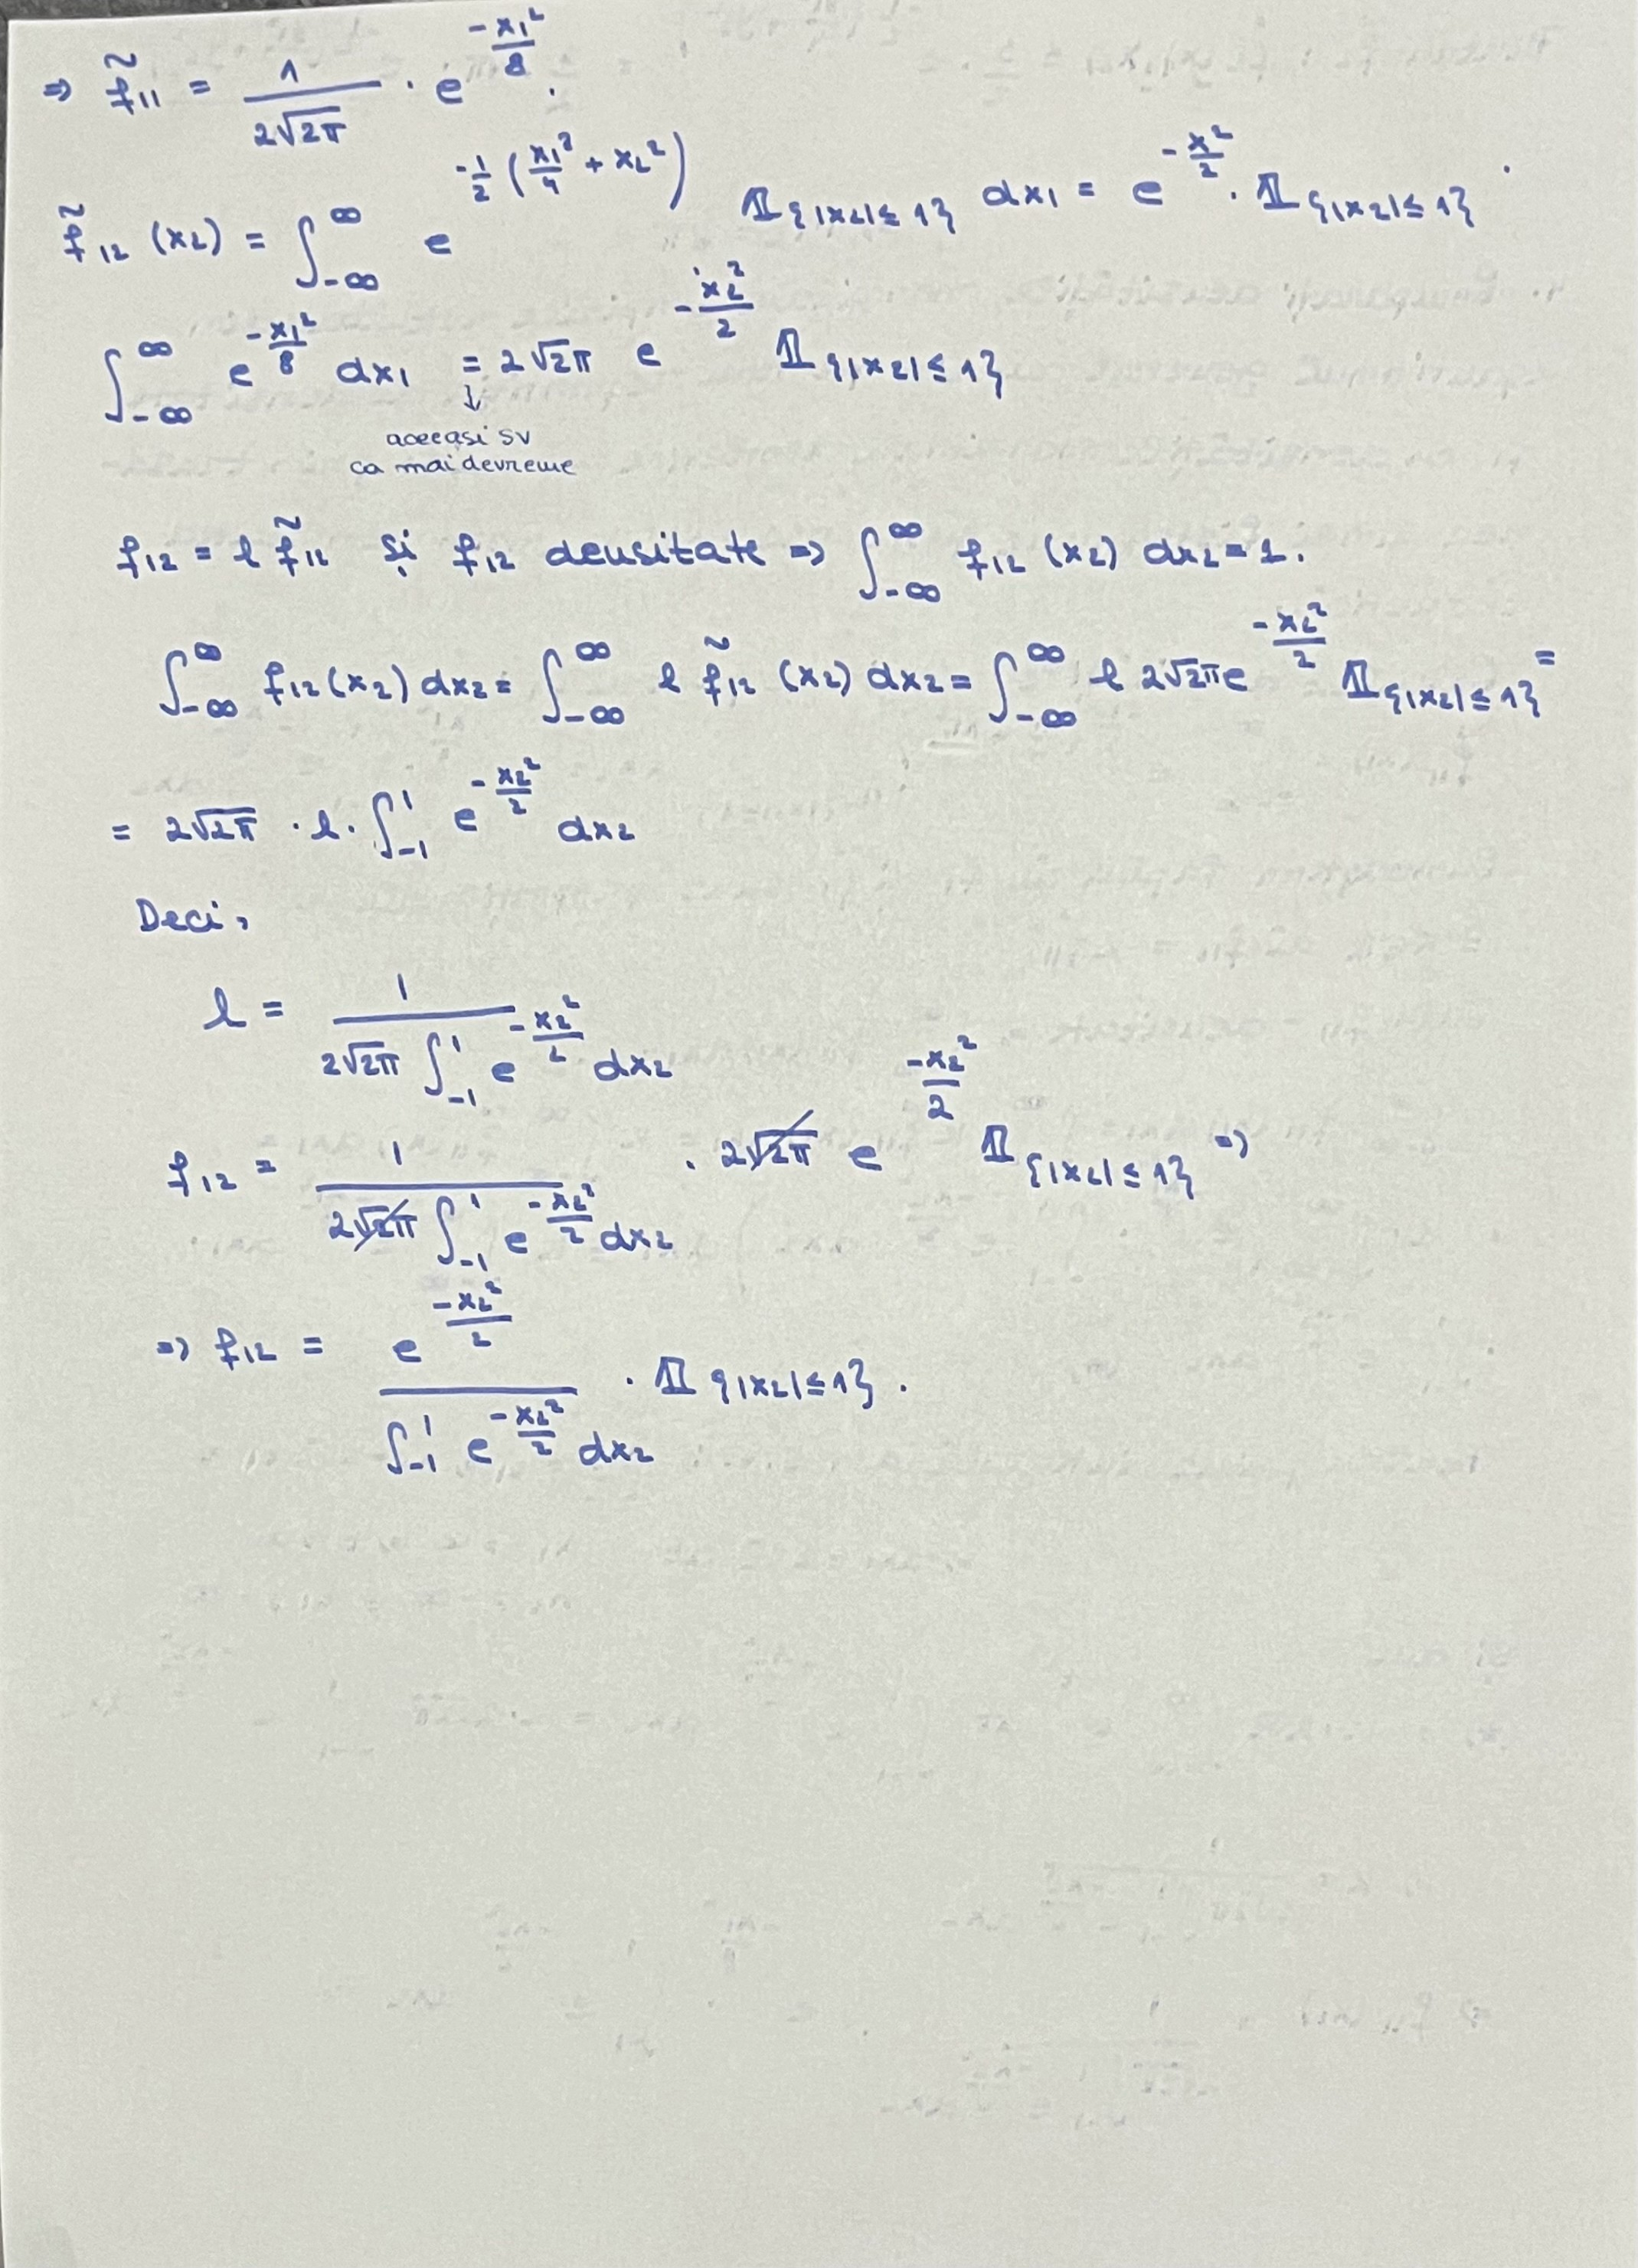 ⇒ f̃₁₁ = 1/(2√2π) · e^(-x₁²/8).
f̃₁₂ (x₂) = ∫_{-∞}^{∞} e^(-1/2 (x₁²/4 + x₂²)) 𝟙_{|x₂|≤1} dx₁ = e^(-x²/2) · 𝟙_{|x₂|≤1} ·
∫_{-∞}^{∞} e^(-x₁²/8) dx₁ = 2√2π e^(-x₂²/2) 𝟙_{|x₂|≤1}
↓
aceeasi sv
ca mai devreme
f₁₂ = l f̃₁₂ și f₁₂ densitate ⇒ ∫_{-∞}^{∞} f₁₂ (x₂) dx₂ = 1.
∫_{-∞}^{∞} f₁₂(x₂) dx₂ = ∫_{-∞}^{∞} l f̃₁₂ (x₂) dx₂ = ∫_{-∞}^{∞} l 2√2π e^(-x₂²/2) 𝟙_{|x₂|≤1} =
= 2√2π · l · ∫_{-1}^{1} e^(-x₂²/2) dx₂
Deci,
l = 1/(2√2π ∫_{-1}^{1} e^(-x₂²/2) dx₂)
f₁₂ = 1/(2√2π ∫_{-1}^{1} e^(-x₂²/2) dx₂) · 2√2π e^(-x₂²/2) 𝟙_{|x₂|≤1} ⇒
⇒ f₁₂ = e^(-x₂²/2)/(∫_{-1}^{1} e^(-x₂²/2) dx₂) · 𝟙_{|x₂|≤1}.